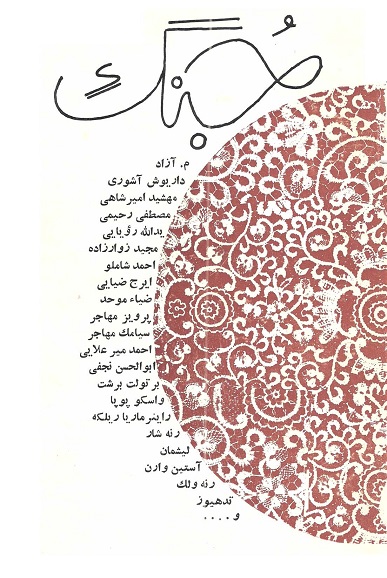 جُنگ
م. آزاد
داریوش آشوری
مهشید امیرشاهی
مصطفی رحیمی
یدالله رؤیایی
مجید زوارزاده
احمد شاملو
ایرج ضیایی
ضیاء موحد
پرویز مهاجر
سیامك مهاجر
احمد میرعلایی
ابوالحسن نجفی
برتولت برشت
واسکو پوپا
راینر ماریا ریلکه
رنه شار
لیشمان
آستین وارن
رنه ولك
تدهیوز
و ....